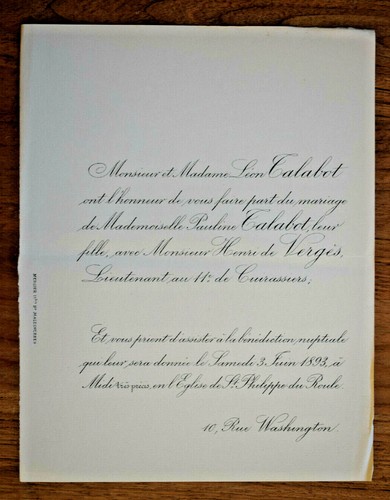 Monsieur et Madame Léon Talabot
ont l'honneur de vous faire part du mariage
de Mademoiselle Pauline Talabot, leur
fille, avec Monsieur Henri de Vergès,
Lieutenant au 11e de Cuirassiers,
Et vous prient d'assister à la bénédiction nuptiale
qui leur sera donnée le Samedi 3 Juin 1893, à
Midi très précis, en l'Eglise de St Philippe du Roule.
10, Rue Washington.